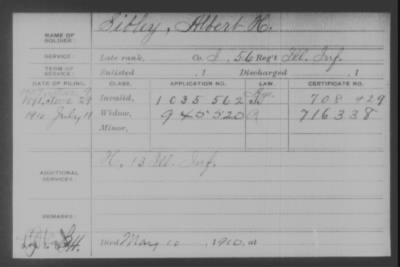 NAME OF SOLDIER: Sibley, Albert H.
SERVICE: Late rank, Co. I, 56 Reg't Ill. Inf.
TERM OF SERVICE: Enlisted , 1 Discharged , 1
DATE OF FILING. CLASS. APPLICATION NO. LAW. CERTIFICATE NO.
1891, June 29 Invalid, 1035562 708429
1910 July 11 Widow, 945520 716338
Minor,
ADDITIONAL SERVICES: K, 13 Ill. Inf.
REMARKS:
Died May 10, 1910, at